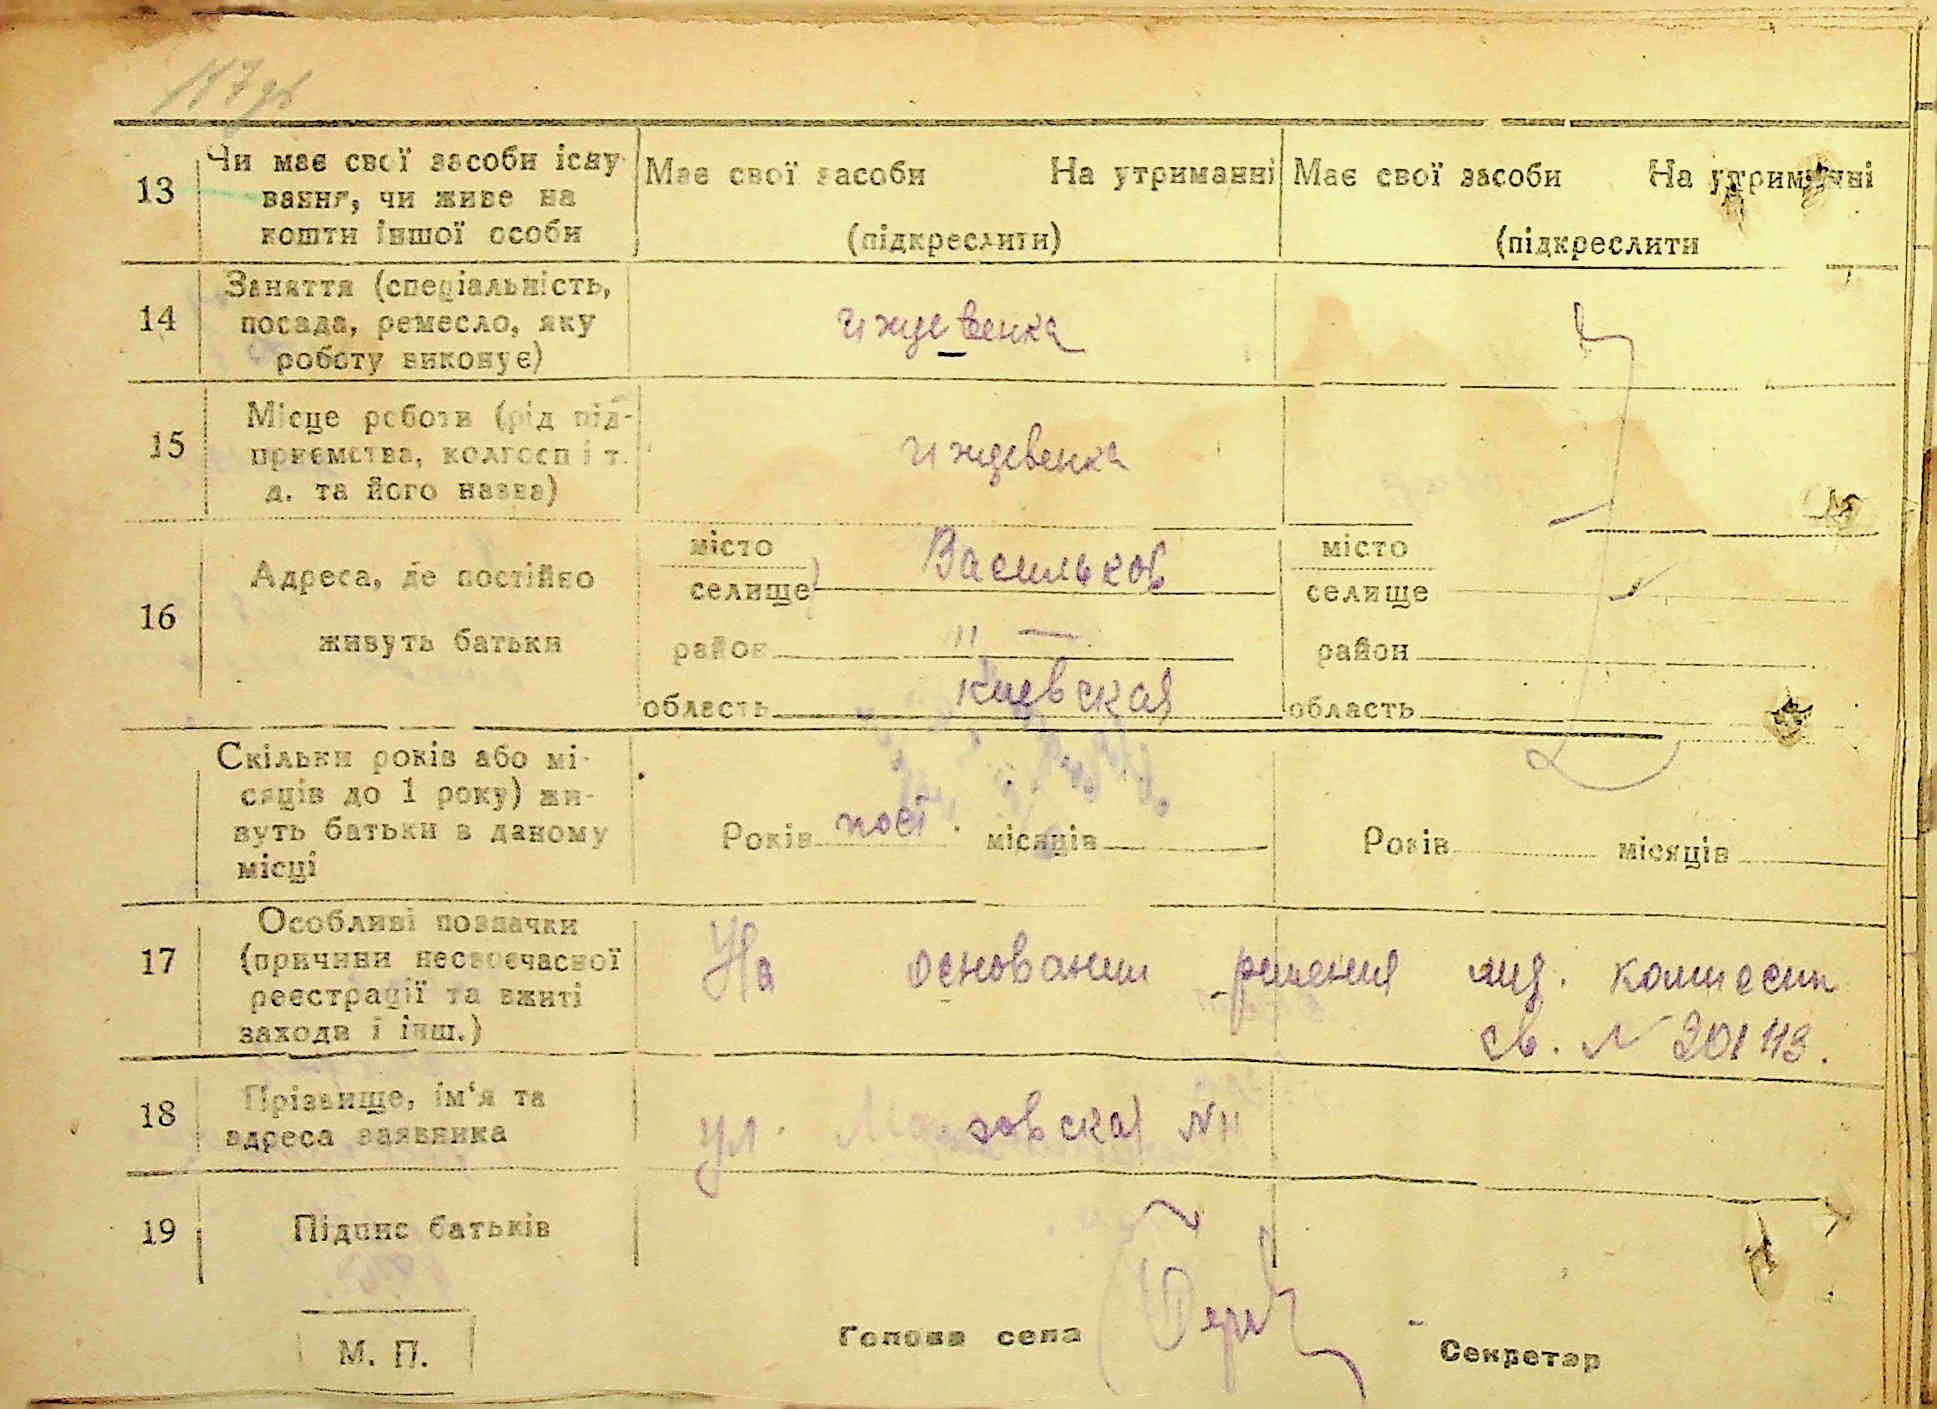 13
Чи має свої засоби існу-
вання, чи живе на
кошти іншої особи
Має свої засоби На утриманні
(підкреслити)
Має свої засоби На утриманні
(підкреслити
14
Заняття (спеціальність,
посада, ремесло, яку
роботу виконує)
иждевенка
15
Місце роботи (рід під-
приємства, колгосп і т.
д. та його назва)
иждевенка
16
Адреса, де постійно
живуть батьки
місто
селище
Васильков
район " —
область Киевская
місто
селище
район
область
Скільки років або мі-
сяців до 1 року) жи-
вуть батьки в даному
місці
Років пост. місяців
Років місяців
17
Особливі позначки
(причини несвоєчасної
реєстрації та вжиті
заходи і інш.)
На основании решения мед. комиссии
св. N 201113.
18
Прізвище, ім'я та
адреса заявника
ул. N 11
19
Підпис батьків
М. П.
Голова села
Секретар